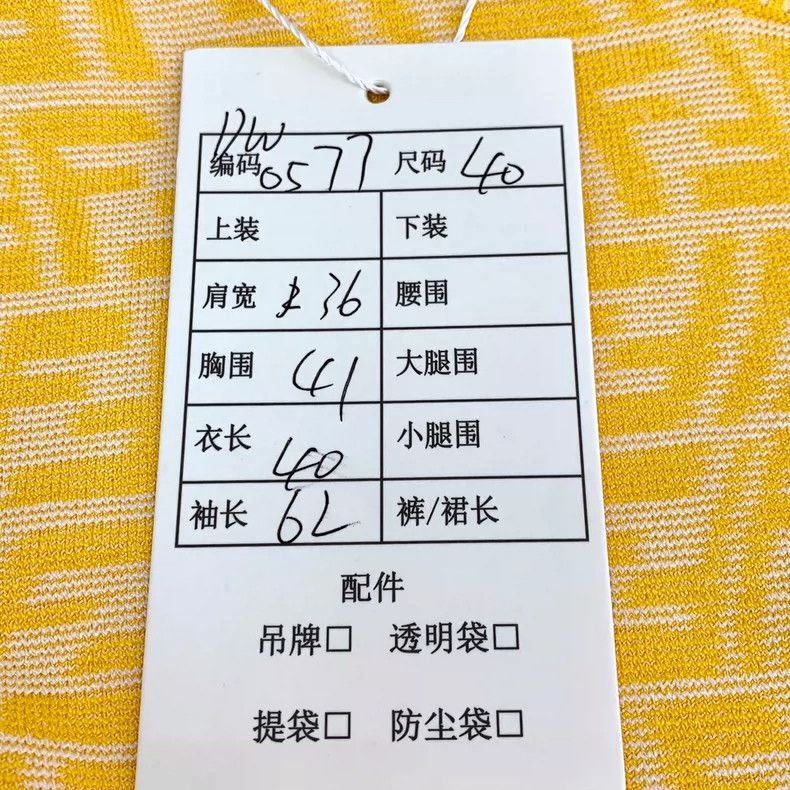 DW
编码 0577 尺码 40
上装 下装
肩宽 36 腰围
胸围 41 大腿围
衣长 40 小腿围
袖长 62 裤/裙长
配件
吊牌□ 透明袋□
提袋□ 防尘袋□